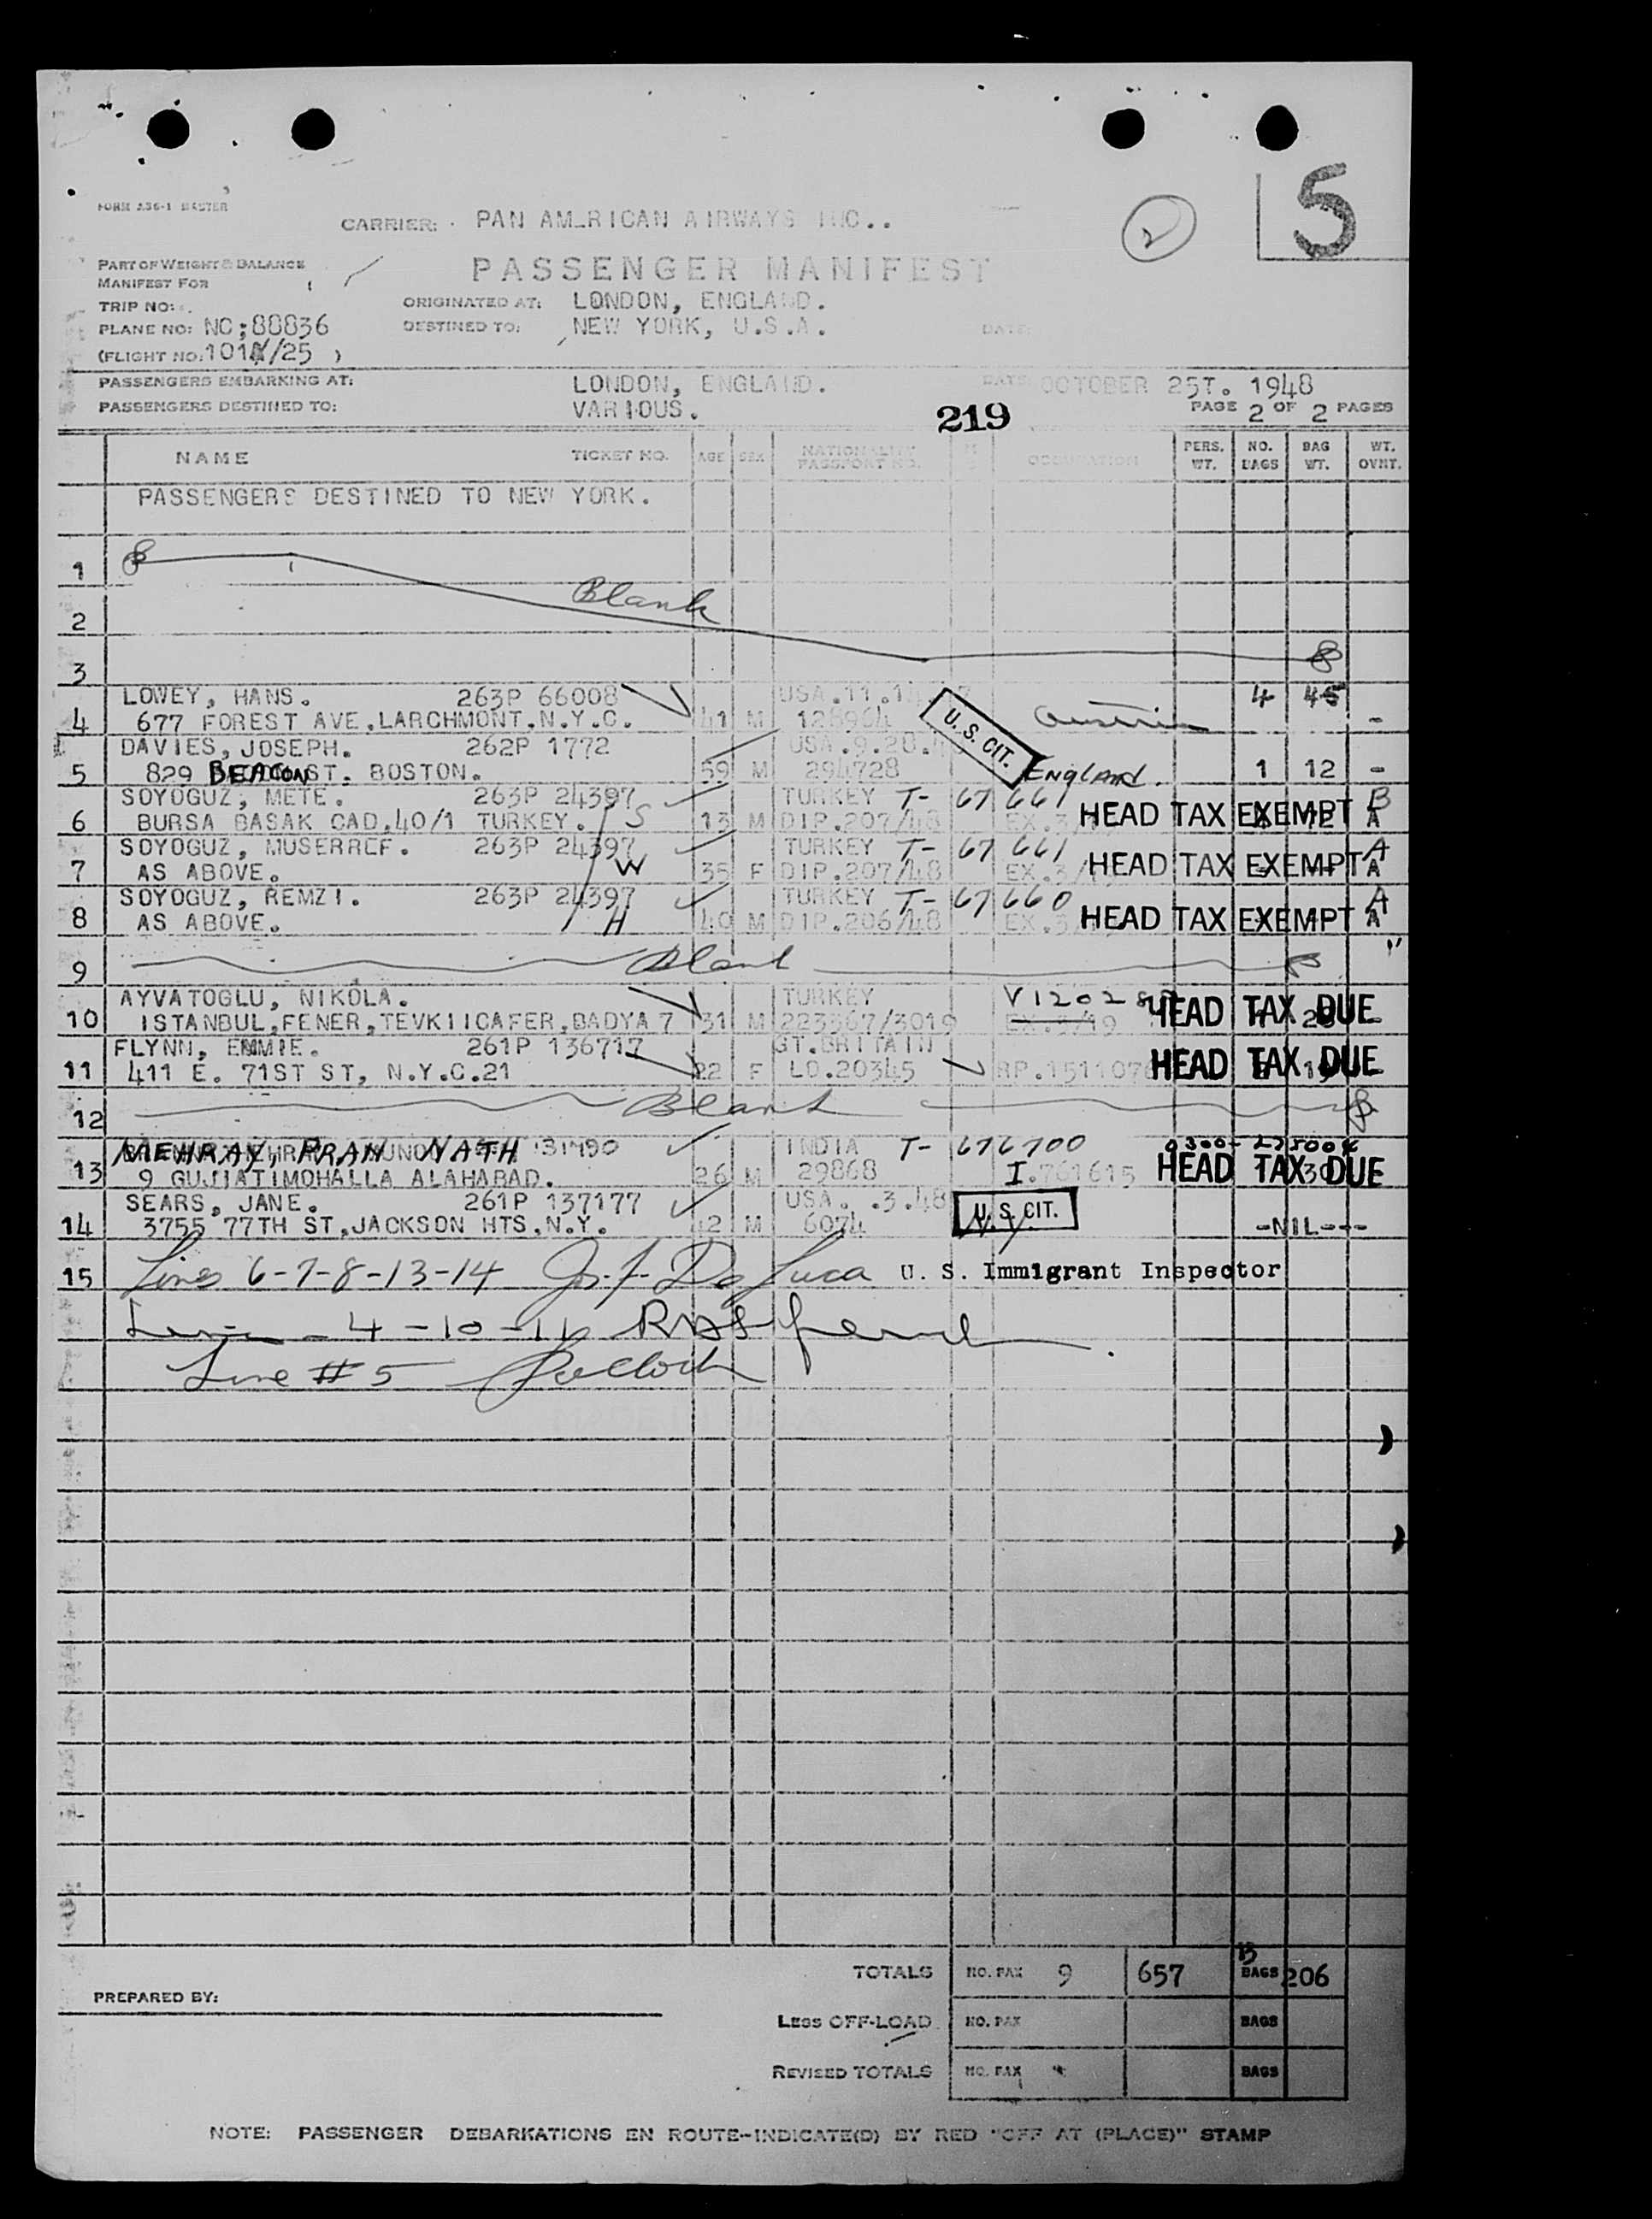 5
2
FORM A36-1 MASTER
CARRIER: PAN AM_RICAN AIRWAYS INC..
PART OF WEIGHT & BALANCE
MANIFEST FOR
PASSENGER MANIFEST
TRIP NO:
ORIGINATED AT: LONDON, ENGLAND.
PLANE NO: NC;88836
DESTINED TO: NEW YORK, U.S.A. DATE:
(FLIGHT NO. 101 /25 )
PASSENGERS EMBARKING AT: LONDON, ENGLAND. DATE OCTOBER 25T. 1948
PASSENGERS DESTINED TO: VARIOUS. 219 PAGE 2 OF 2 PAGES
NAME TICKET NO. AGE SEX NATIONALITY PASSPORT NO. OCCUPATION PERS. WT. NO. BAGS BAG WT. WT. OVNT.
PASSENGERS DESTINED TO NEW YORK.
1
2 Blank
3
LOWEY, HANS. 263P 66008 4 45
4 677 FOREST AVE,LARCHMONT.N.Y.C. 41 M 128964 U.S. CIT. Austria -
DAVIES, JOSEPH. 262P 1772 USA.9.20.
5 829 BEACON ST. BOSTON. 59 M 294728 ENGLAND. 1 12 -
SOYOGUZ, METE. 263P 24397 TURKEY T- 67 661 B
6 BURSA BASAK CAD,40/1 TURKEY. S 13 M DIP.207/48 EX.3/ HEAD TAX EXEMPT A
SOYOGUZ, MUSERREF. 263P 24397 TURKEY T- 67 661 A
7 AS ABOVE. W 35 F DIP.207/48 EX.3/ HEAD TAX EXEMPT A
SOYOGUZ, REMZI. 263P 24397 TURKEY T- 67660 A
8 AS ABOVE. H 40 M DIP.206/48 EX.3 HEAD TAX EXEMPT A
9 Blank
AYVATOGLU, NIKOLA. TURKEY
10 ISTANBUL,FENER,TEVKIICAFER,BADYA 7 31 M 223367/3019 EX.3/19 HEAD TAX DUE
FLYNN, EMMIE. 261P 136717 GT.BRITAIN
11 411 E. 71ST ST, N.Y.C.21 22 F LO.20345 RP.1511076 HEAD TAX DUE
12 Blank
MEHRAY, PRAN NATH INDIA T- 676700
13 9 GUJIATIMOHALLA ALAHABAD. 26 M 29868 I.761615 HEAD TAX DUE
SEARS, JANE. 261P 137177 USA. .3.48
14 3755 77TH ST,JACKSON HTS,N.Y. 42 M 6074 U.S. CIT. N.Y. -NIL---
15 Lines 6-7-8-13-14 Jos. F. De Luca U. S. Immigrant Inspector
4 - 10 - 11
Line #5
TOTALS NO. PAX 9 657 13 BAGS 206
PREPARED BY:
LESS OFF-LOAD NO. PAX BAGS
REVISED TOTALS NO. PAX BAGS
NOTE: PASSENGER DEBARKATIONS EN ROUTE--INDICATE(D) BY RED "OFF AT (PLACE)" STAMP